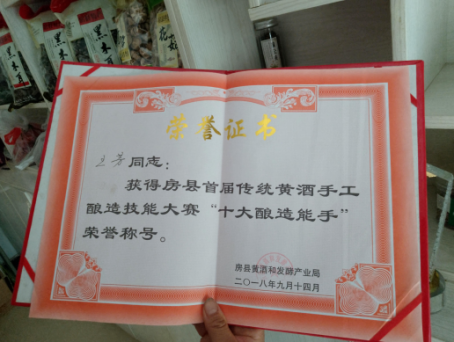 黑木耳
黑木耳
荣誉证书
同志：
获得房县首届传统黄酒手工
酿造技能大赛“十大酿造能手”
荣誉称号。
房县黄酒和发酵产业局
二〇一八年九月十四月